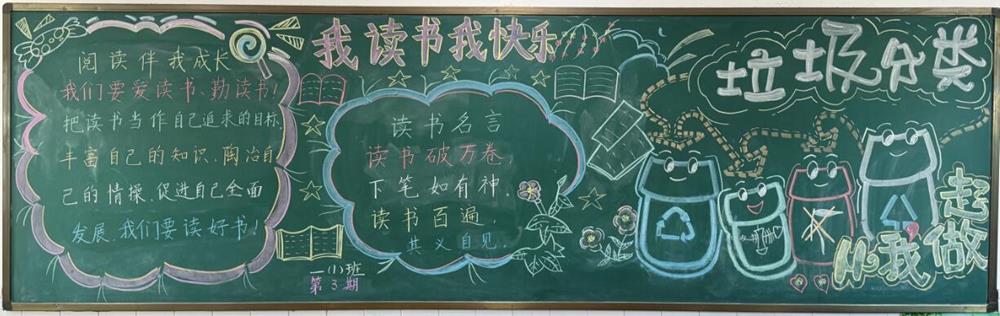 我读书我快乐
阅读伴我成长
我们要爱读书、勤读书!
把读书当作自己追求的目标,
丰富自己的知识,陶冶自
己的情操,促进自己全面
发展,我们要读好书!
读书名言
读书破万卷,
下笔如有神
读书百遍,
其义自见。
一(1)班
第3期
垃圾分类
从我做起